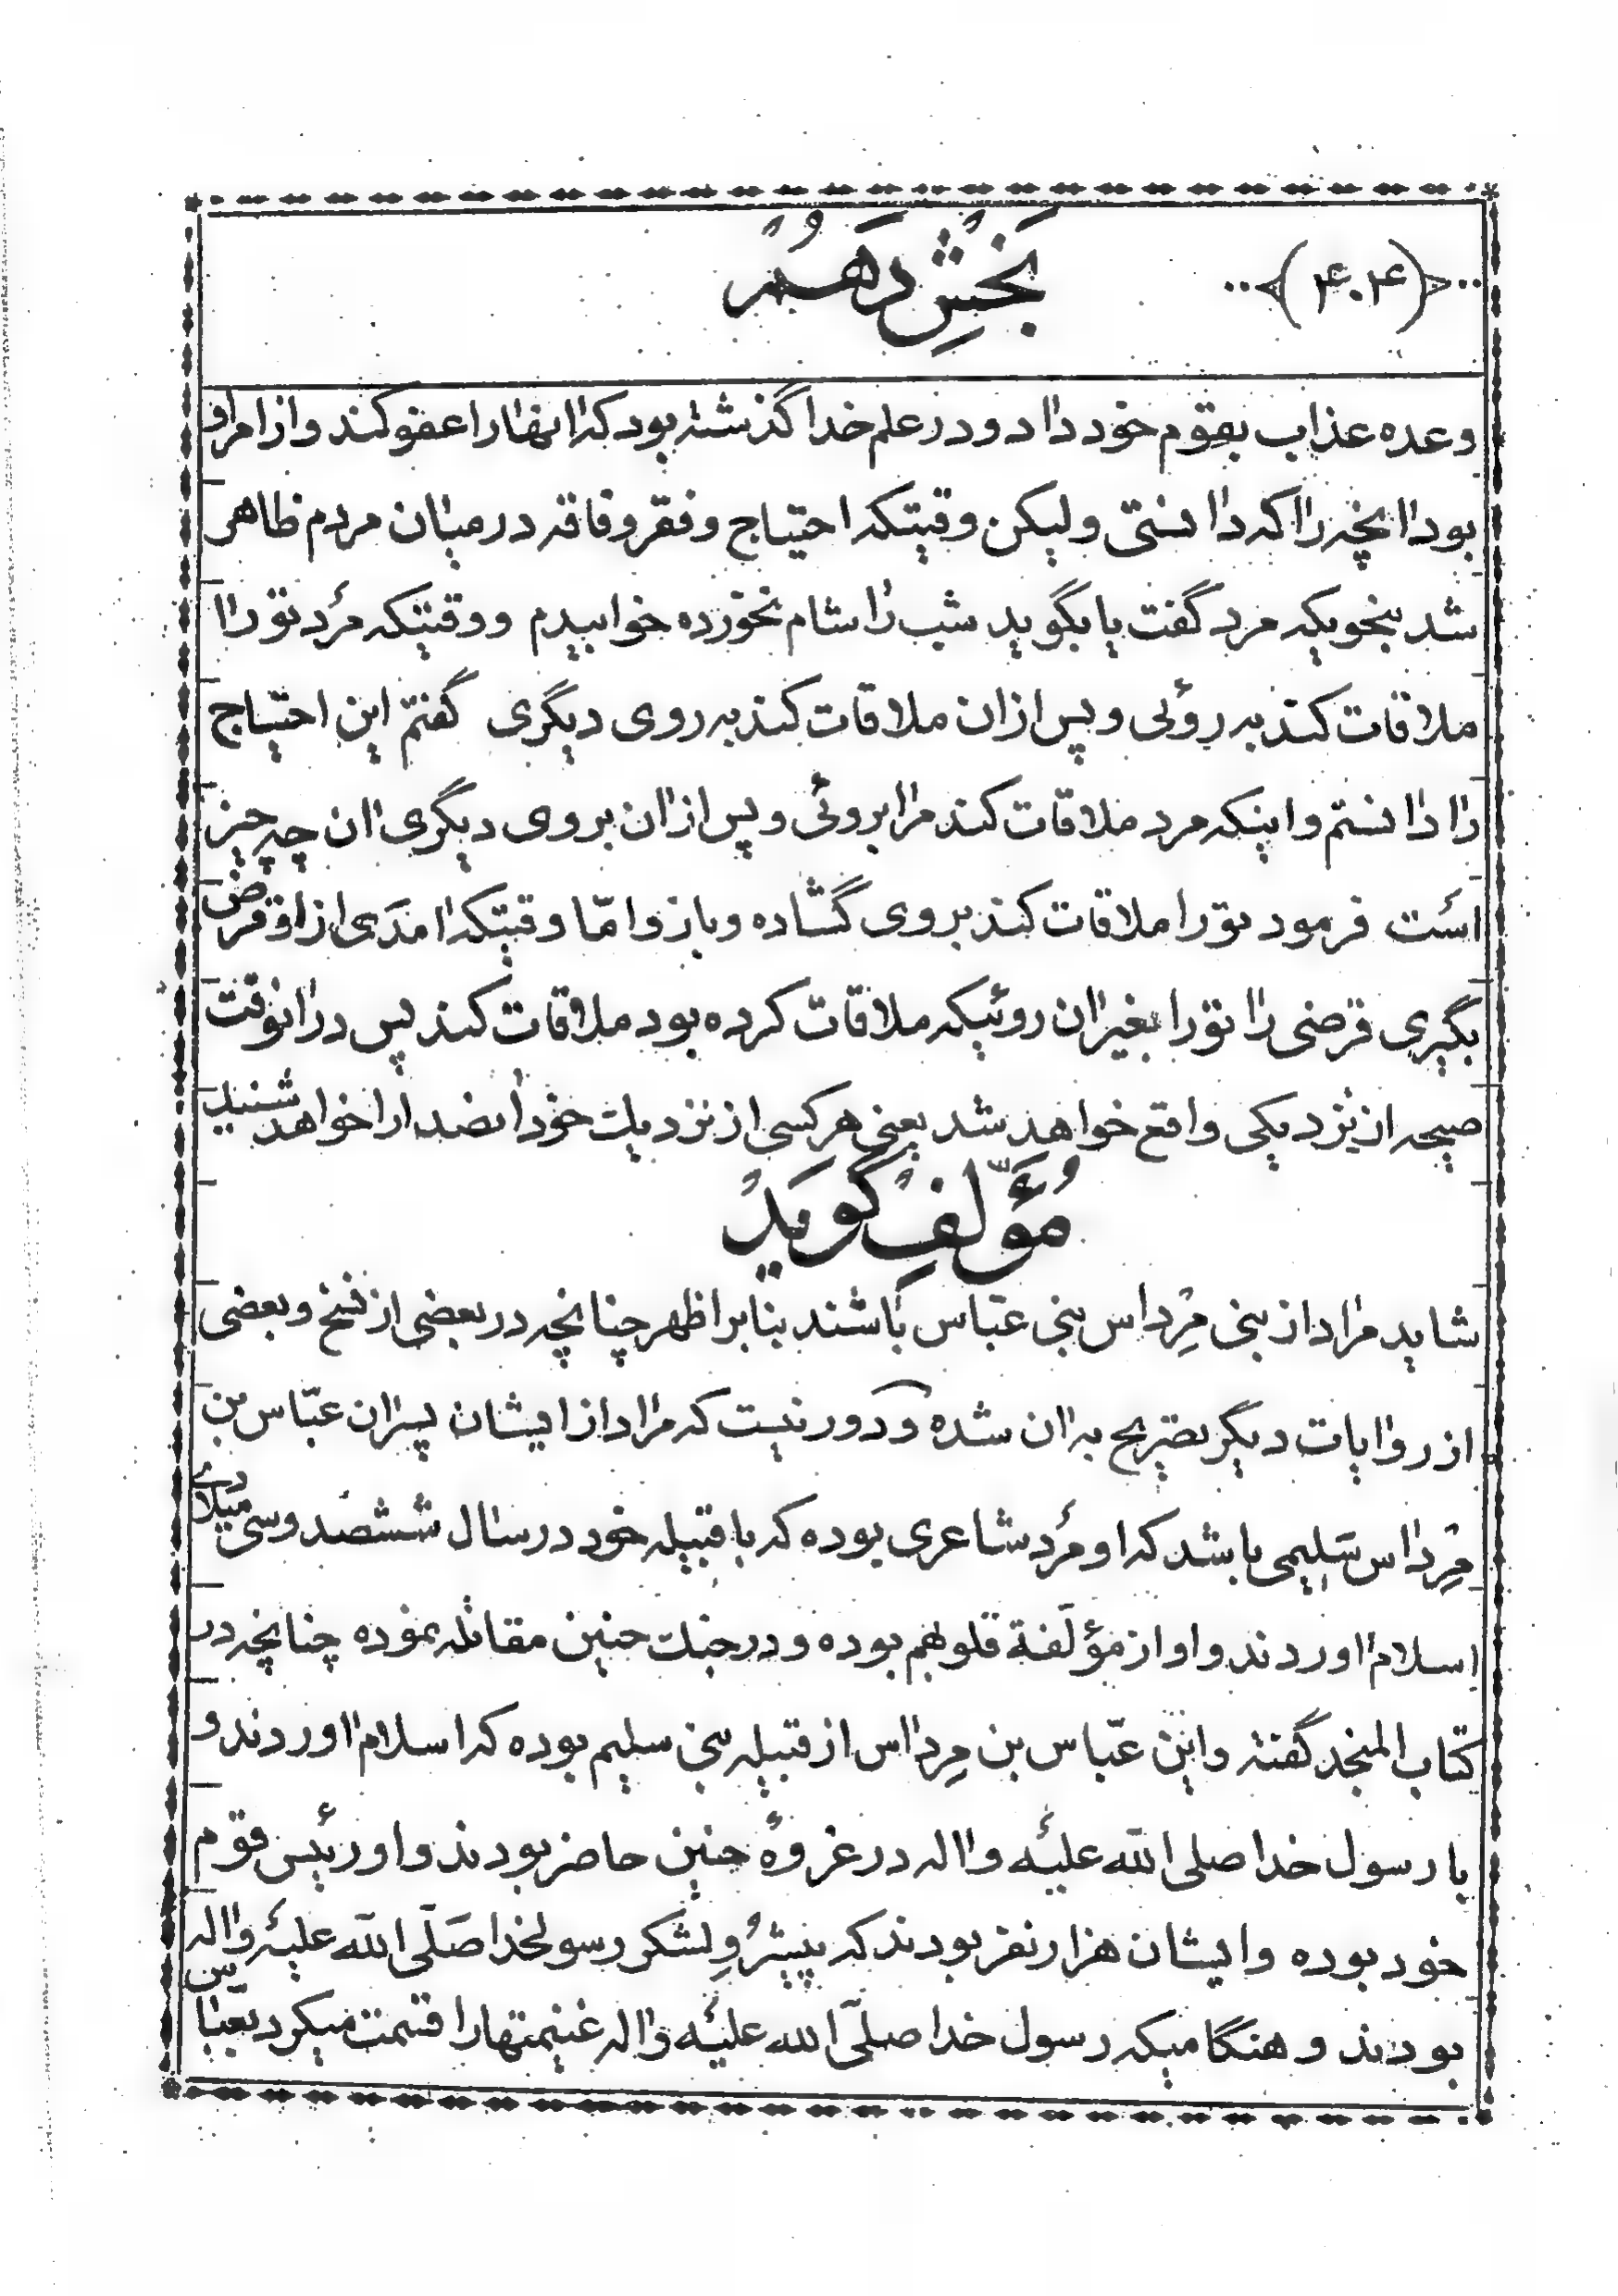 ﴿۴۰۴﴾ بَخشِ دَهُم
وعده عذاب بقوم خود داد و در علم خدا گذشته بود که آنها را عفو کند و از امر او
بود آنچه را که دانستی ولیکن وقتیکه احتیاج و فقر و فاقه در میان مردم ظاهر
شد بنحویکه مرد گفت یا بگوید شب را شام نخورده خوابیدم و وقتیکه مرد تو را
ملاقات کند به روئی و پس از آن ملاقات کند به روی دیگری گفتم این احتیاج
را دانستم و اینکه مرد ملاقات کند مرا بروئی و پس از آن بروی دیگری آن چه چیز
است فرمود تو را ملاقات کند بروی گشاده و باز و امّا وقتیکه آمدی از او قرض
بگیری قرضی را تو را بغیر آن روئیکه ملاقات کرده بود ملاقات کند پس در آنوقت
صیحه از نزدیکی واقع خواهد شد یعنی هر کسی از نزدیک خود آنصدا را خواهد شنید
مُؤَلِّفِ گُویَد
شاید مراد از بنی مِرداس بنی عبّاس باشند بنابر اظهر چنانچه در بعضی از نسخ و بعضی
از روایات دیگر تصریح به آن شده و دور نیست که مراد از ایشان پسران عبّاس بن
مِرداس سَلیمی باشد که او مرد شاعری بوده که با قبیله خود در سال ششصد و سی میلادی
اسلام آوردند و او از مؤلّفة قلوبهم بوده و در جنگ حنین مقاتله نموده چنانچه در
کتاب المنجد گفته و این عبّاس بن مِرداس از قبیله بنی سلیم بوده که اسلام آوردند و
با رسول خدا صلی الله علیه و آله در غزوهٔ حنین حاضر بودند و او رئیس قوم
خود بوده و ایشان هزار نفر بودند که پیشروِ لشکر رسولخدا صَلّی الله علیه و آله
بودند و هنگامیکه رسول خدا صلّی الله علیه و آله غنیمتها را قسمت میکرد بعبّاس بن